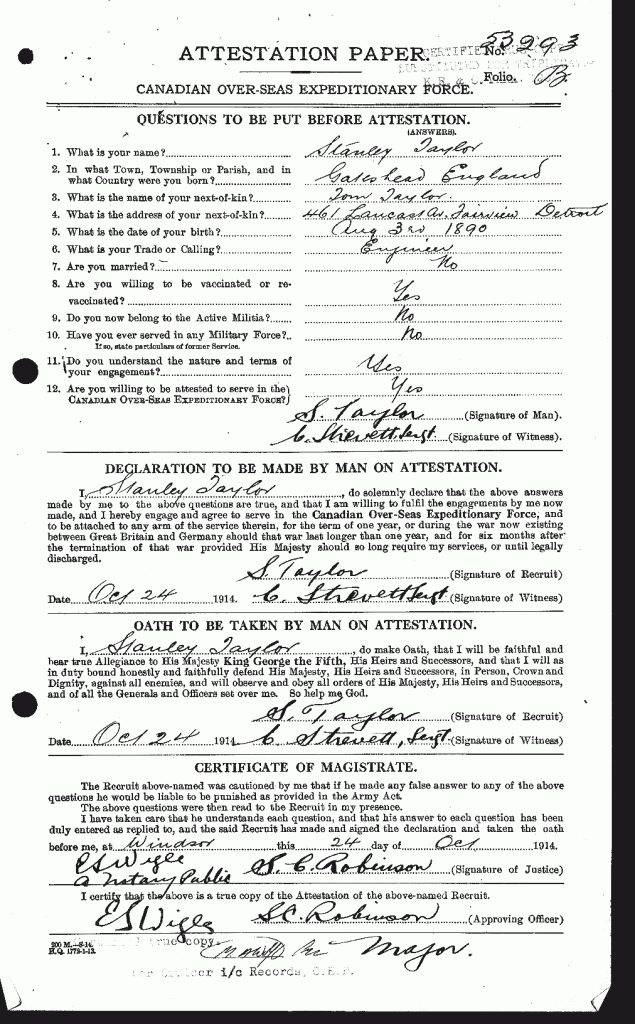 53293
ATTESTATION PAPER. No.
Folio. B
CANADIAN OVER-SEAS EXPEDITIONARY FORCE.
QUESTIONS TO BE PUT BEFORE ATTESTATION.
(ANSWERS).
1. What is your name? Stanley Taylor
2. In what Town, Township or Parish, and in
what Country were you born? Gateshead England
3. What is the name of your next-of-kin? Tom Taylor.
4. What is the address of your next-of-kin? 461 Lancast Av. Fairview Detroit
5. What is the date of your birth? Aug 3rd 1890
6. What is your Trade or Calling? Engineer
7. Are you married? No
8. Are you willing to be vaccinated or re-
vaccinated? Yes
9. Do you now belong to the Active Militia? No
10. Have you ever served in any Military Force?.. No
If so, state particulars of former Service.
11. Do you understand the nature and terms of
your engagement? Yes
12. Are you willing to be attested to serve in the
CANADIAN OVER-SEAS EXPEDITIONARY FORCE? Yes
S. Taylor (Signature of Man).
C. Strevett, Sergt. (Signature of Witness).
DECLARATION TO BE MADE BY MAN ON ATTESTATION.
I, Stanley Taylor, do solemnly declare that the above answers
made by me to the above questions are true, and that I am willing to fulfil the engagements by me now
made, and I hereby engage and agree to serve in the Canadian Over-Seas Expeditionary Force, and
to be attached to any arm of the service therein, for the term of one year, or during the war now existing
between Great Britain and Germany should that war last longer than one year, and for six months after
the termination of that war provided His Majesty should so long require my services, or until legally
discharged.
S. Taylor (Signature of Recruit)
Date Oct 24 1914. C. Strevett Sergt. (Signature of Witness)
OATH TO BE TAKEN BY MAN ON ATTESTATION.
I, Stanley Taylor, do make Oath, that I will be faithful and
bear true Allegiance to His Majesty King George the Fifth, His Heirs and Successors, and that I will as
in duty bound honestly and faithfully defend His Majesty, His Heirs and Successors, in Person, Crown and
Dignity, against all enemies, and will observe and obey all orders of His Majesty, His Heirs and Successors,
and of all the Generals and Officers set over me. So help me God.
S. Taylor (Signature of Recruit)
Date Oct 24 1914 C. Strevett, Sergt. (Signature of Witness)
CERTIFICATE OF MAGISTRATE.
The Recruit above-named was cautioned by me that if he made any false answer to any of the above
questions he would be liable to be punished as provided in the Army Act.
The above questions were then read to the Recruit in my presence.
I have taken care that he understands each question, and that his answer to each question has been
duly entered as replied to, and the said Recruit has made and signed the declaration and taken the oath
before me, at Windsor this 24 day of Oct 1914.
ES Wigle
a Notary Public S. C. Robinson (Signature of Justice)
I certify that the above is a true copy of the Attestation of the above-named Recruit.
ES Wigle S.C. Robinson (Approving Officer)
200 M.—8-14.
H.Q. 1772-1-13.
true copy.
Major.
for Officer i/c Records, C.E.F.